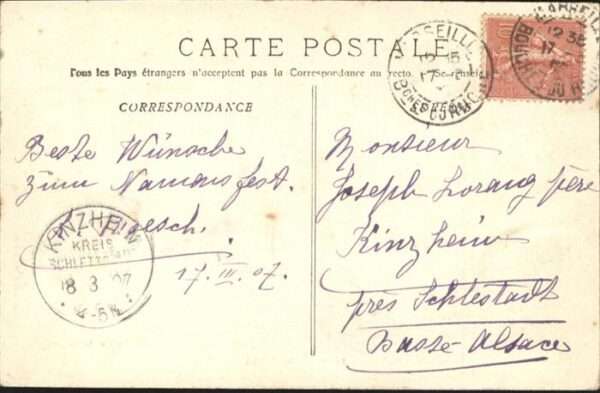 CARTE POSTALE
Tous les Pays étrangers n'acceptent pas la Correspondance au recto. (Se renseigner
CORRESPONDANCE
Beste Wünsche
zum Namensfest.
17. III. 07.
Monsieur
Joseph Lorang père
Kinzheim
près Schlestadt
Basse-Alsace
MARSEILLE
12 35
17
BOUCHES DU RHONE
MARSEILLE
12 35
17
KINZHEIM
KREIS
SCHLETTSTADT
18 3 07
4-5N